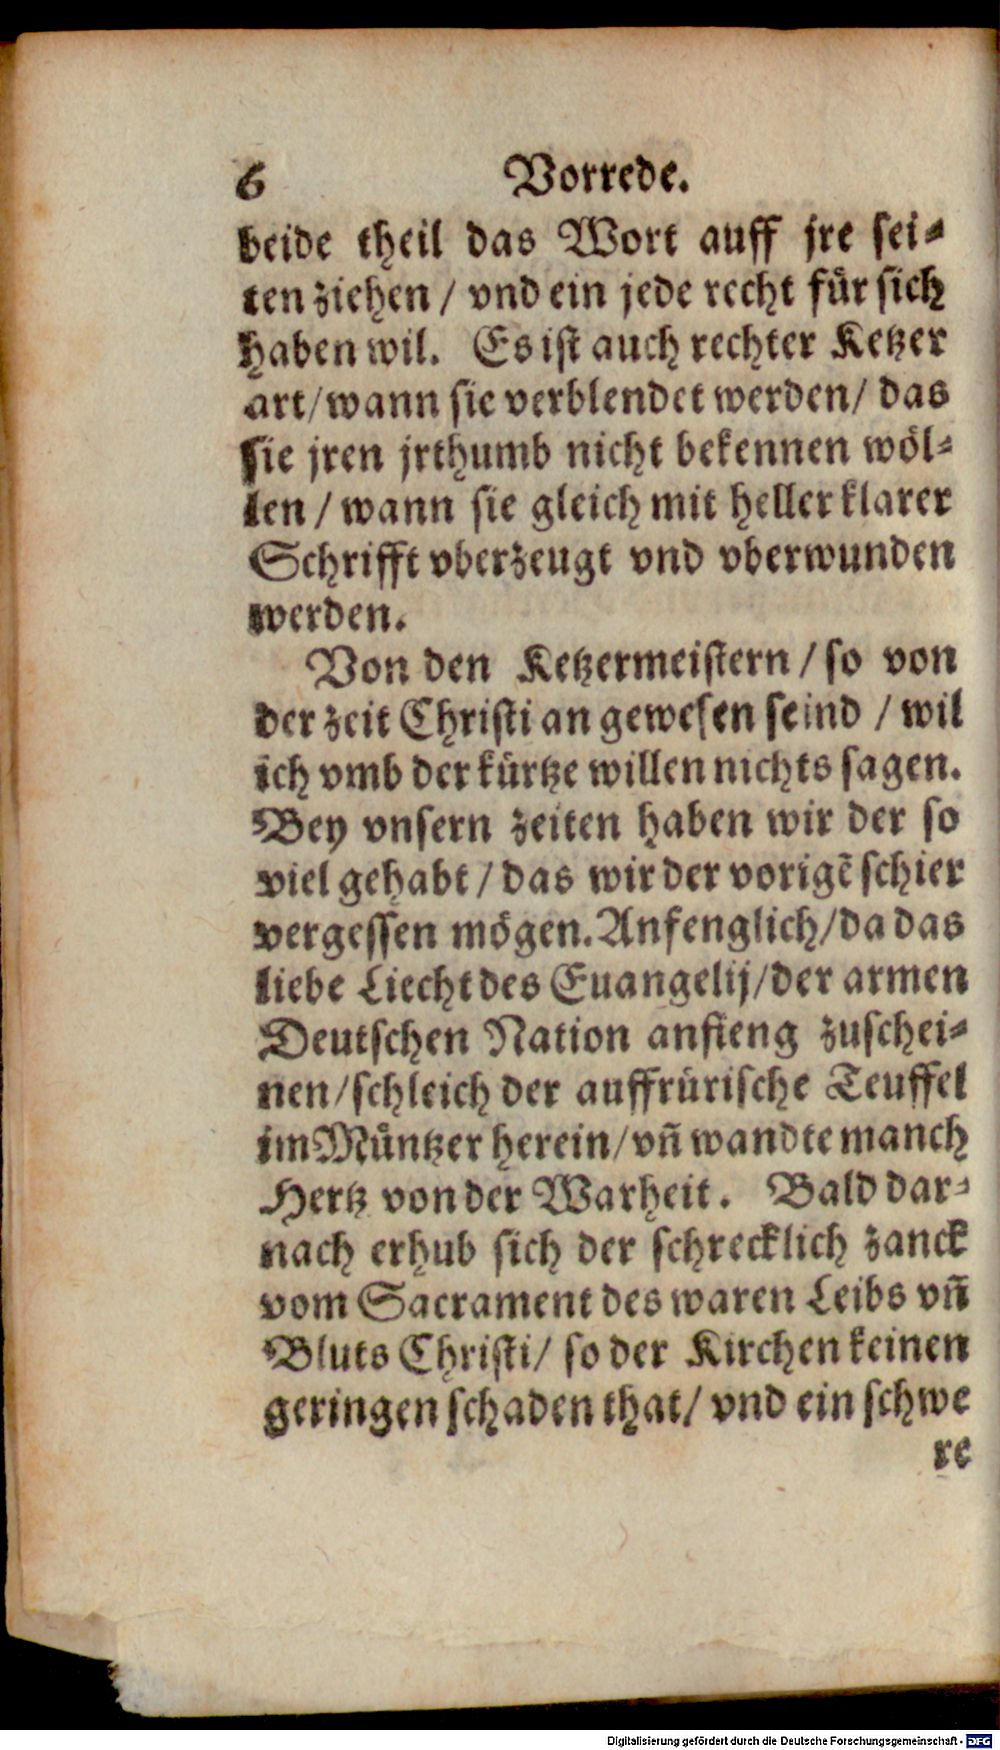 6 Vorrede.
beide theil das Wort auff jre sei-
ten ziehen / vnd ein jede recht fuͤr sich
haben wil. Es ist auch rechter Ketzer
art/wann sie verblendet werden/ das
sie jren jrthumb nicht bekennen woͤl-
len / wann sie gleich mit heller klarer
Schrifft vberzeugt vnd vberwunden
werden.
Von den Ketzermeistern / so von
der zeit Christi an gewesen seind / wil
ich vmb der kuͤrtze willen nichts sagen.
Bey vnsern zeiten haben wir der so
viel gehabt / das wir der vorigē schier
vergessen moͤgen. Anfenglich/da das
liebe Liecht des Euangelij/der armen
Deutschen Nation anfieng zuschei-
nen/schleich der auffruͤrische Teuffel
im Muͤntzer herein/vn̄ wandte manch
Hertz von der Warheit. Bald dar-
nach erhub sich der schrecklich zanck
vom Sacrament des waren Leibs vn̄
Bluts Christi/ so der Kirchen keinen
geringen schaden that/ vnd ein schwe
re
Digitalisierung gefördert durch die Deutsche Forschungsgemeinschaft - DFG